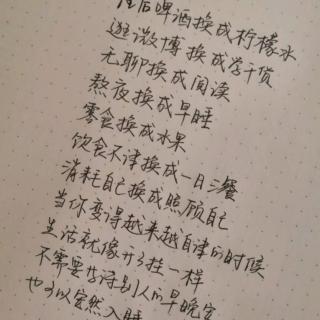 啤酒换成柠檬水
逛微博换成学干货
无聊换成阅读
熬夜换成早睡
零食换成水果
饮食不律换成一日三餐
消耗自己换成照顾自己
当你变得越来越自律的时候
生活就像开了挂一样
不需要等待别人的早晚安
也可以安然入睡